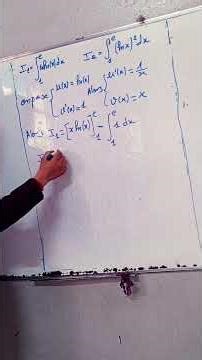 I₁ = ∫₁ᵉ ln(x)dx    I₂ = ∫₁ᵉ (ln x)² dx
on pose { u(x) = ln(x)   Alors { u'(x) = 1/x
v'(x) = 1    v(x) = x
Alors I₁ = [x ln(x)]₁ᵉ − ∫₁ᵉ 1 dx
I